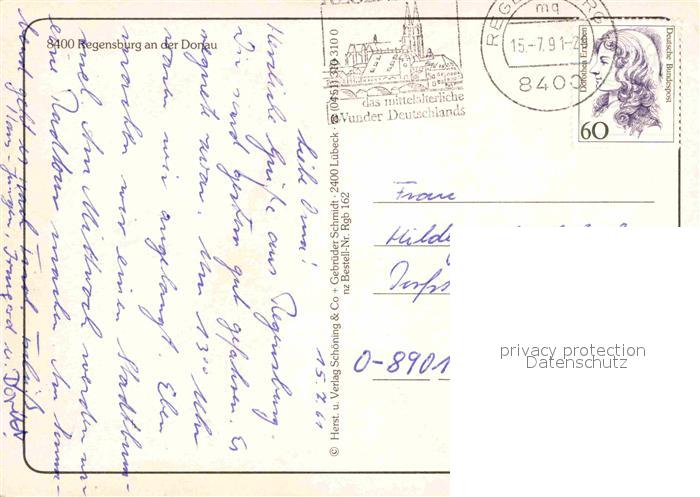 8400 Regensburg an der Donau
das mittelalterliche
Wunder Deutschlands
REGENSBURG
mq
15.-7.91-2
8400
Deutsche Bundespost
Dorothea Erxleben
60
© Herst. u. Verlag Schöning & Co + Gebrüder Schmidt · 2400 Lübeck · ☎ (0451) 310 310 0
nz Bestell-Nr. Rgb 162
15.7.91
Liebe Oma!
Herzliche Grüße aus Regensburg.
Wir sind gestern gut gefahren. Es
regnete zwar. Um 13⁰⁰ Uhr
waren wir angelangt. Eben
machten wir einen Stadtbum-
mel. Am Mittwoch werden wir
eine Radtour machen. Am
Frau
O-8901
privacy protection
Datenschutz